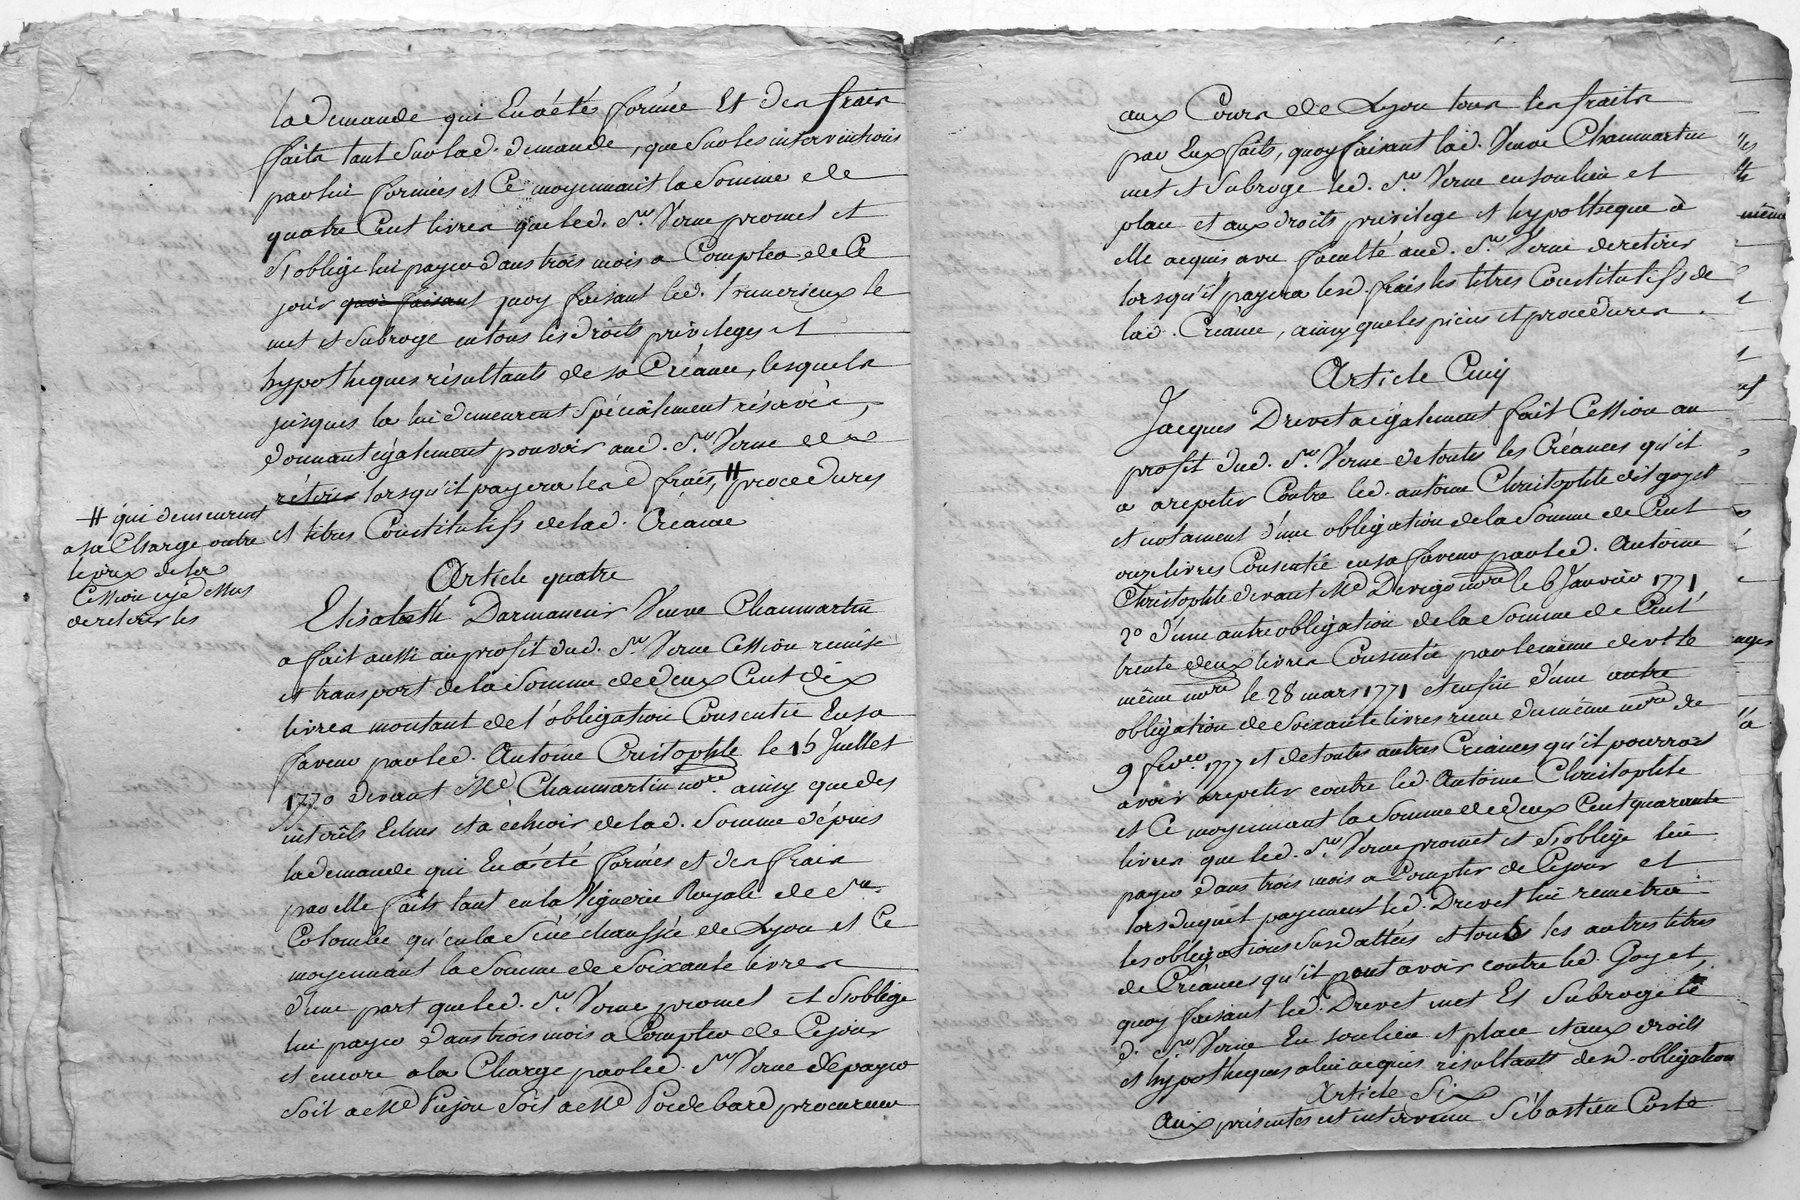 la demande qui En a été formée Et des frais
faits tant sur lad. demande, que sur les interventions
par lui formées et Ce moyennant la Somme de
quatre Cent livres que led. Sr. Verne promet et
S'oblige lui payer dans trois mois a Compter de Ce
jour quoi faisant quoy faisant led. le
met et Subroge en tous les droits privileges et
hypotheques résultants de sa Créance, lesquels
jusques la lui demeurent Spécialement réservés,
donnant également pouvoir aud. Sr. Verne de
rétirer lorsqu'il payera lesd frais, # procedures
et titres Constitutifs de lad. Créance
# qui demeurent
a sa Charge outre
le prix de la
Cession cy dessus
de retirer les
Article quatre
Elisabeth Darmancier Veuve Chaumartin
a fait aussi au profit dud. Sr. Verne Cession remise
et transport de la Somme de deux Cent dix
livres montant de l'obligation Consentie En sa
faveur par led. Antoine Cristophle le 15 Juillet
1770 devant Me. Chaumartin nore. ainsy que des
intérêts Echus et a échoir de lad. Somme dépuis
la demande qui En a été formées et des frais
par elle faits tant en la Viguerie Royale de Ste.
Colombe qu'en la Sénéchaussée de Lyon et Ce
moyennant la Somme de Soixante livres
d'une part que led. Sr. Verne promet et S'oblige
lui payer dans trois mois a Compter de Ce jour
et encore a la Charge par led. Sr. Verne de payer
Soit a Me. Pujou Soit a Me. Poidebard procureur
aux Cours de Lyon tous les fraits
par Eux faits, quoy faisant lad. Veuve Chaumartin
met et Subroge led. Sr. Verne en son lieu et
place et aux droits privilege et hypotheque a
elle acquis avec faculté aud. Sr. Verne de retirer
lorsqu'il payera lesd. frais les titres Constitutifs de
lad. Créance, ainsy que les pieces et procedures.
Article Cinq
Jacques Drevet a également fait Cession au
profit dud. Sr. Verne de toutes les Créances qu'il
a a repeter Contre led. antoine Christophle dit goyet
et notament d'une obligation de la Somme de Cent
onze livres Consentie en sa faveur par led. Antoine
Christophle devant Me Devigo nore le 6 Janvier 1771
2o d'une autre obligation de la Somme de Cent
trente deux livres Consentie par le même devt le
même nore le 28 mars 1771 et enfin d'une autre
obligation de Soixante livres reçue du même nore de
9 fevre. 1777 et de toutes autres Créances qu'il pourroit
avoir a repeter contre led. Antoine Christophle
et Ce moyennant la Somme de deux Cent quarante
livres que led. Sr. Verne promet et S'oblige lui
payer dans trois mois a Compter de Ce jour et
lors duquel payement led. Drevet lui remettra
les obligations Susdattées et tous les autres titres
de Créances qu'il peut avoir contre led. Goyet,
quoy faisant led. Drevet met Et Subroge le
d. Sr. Verne En son lieu et place et aux droits
et hypotheques a lui acquis résultants desd. obligation
Article Six
Aux présentes est intervenu Sébastien Coste